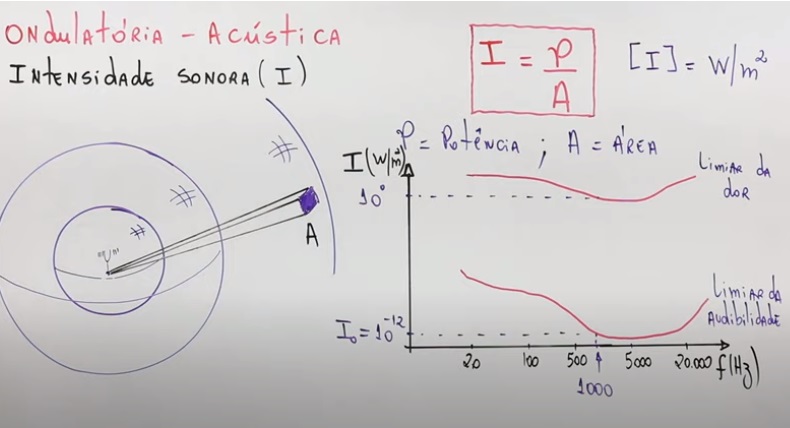 ONDULATÓRIA - ACÚSTICA
INTENSIDADE SONORA (I)
I = P/A
[I] = W/m²
P = POTÊNCIA ; A = ÁREA
I (W/m²)
10⁰
LIMIAR DA DOR
A
I₀ = 10⁻¹²
LIMIAR DA AUDIBILIDADE
20 100 500 5000 20.000 f(Hz)
1000